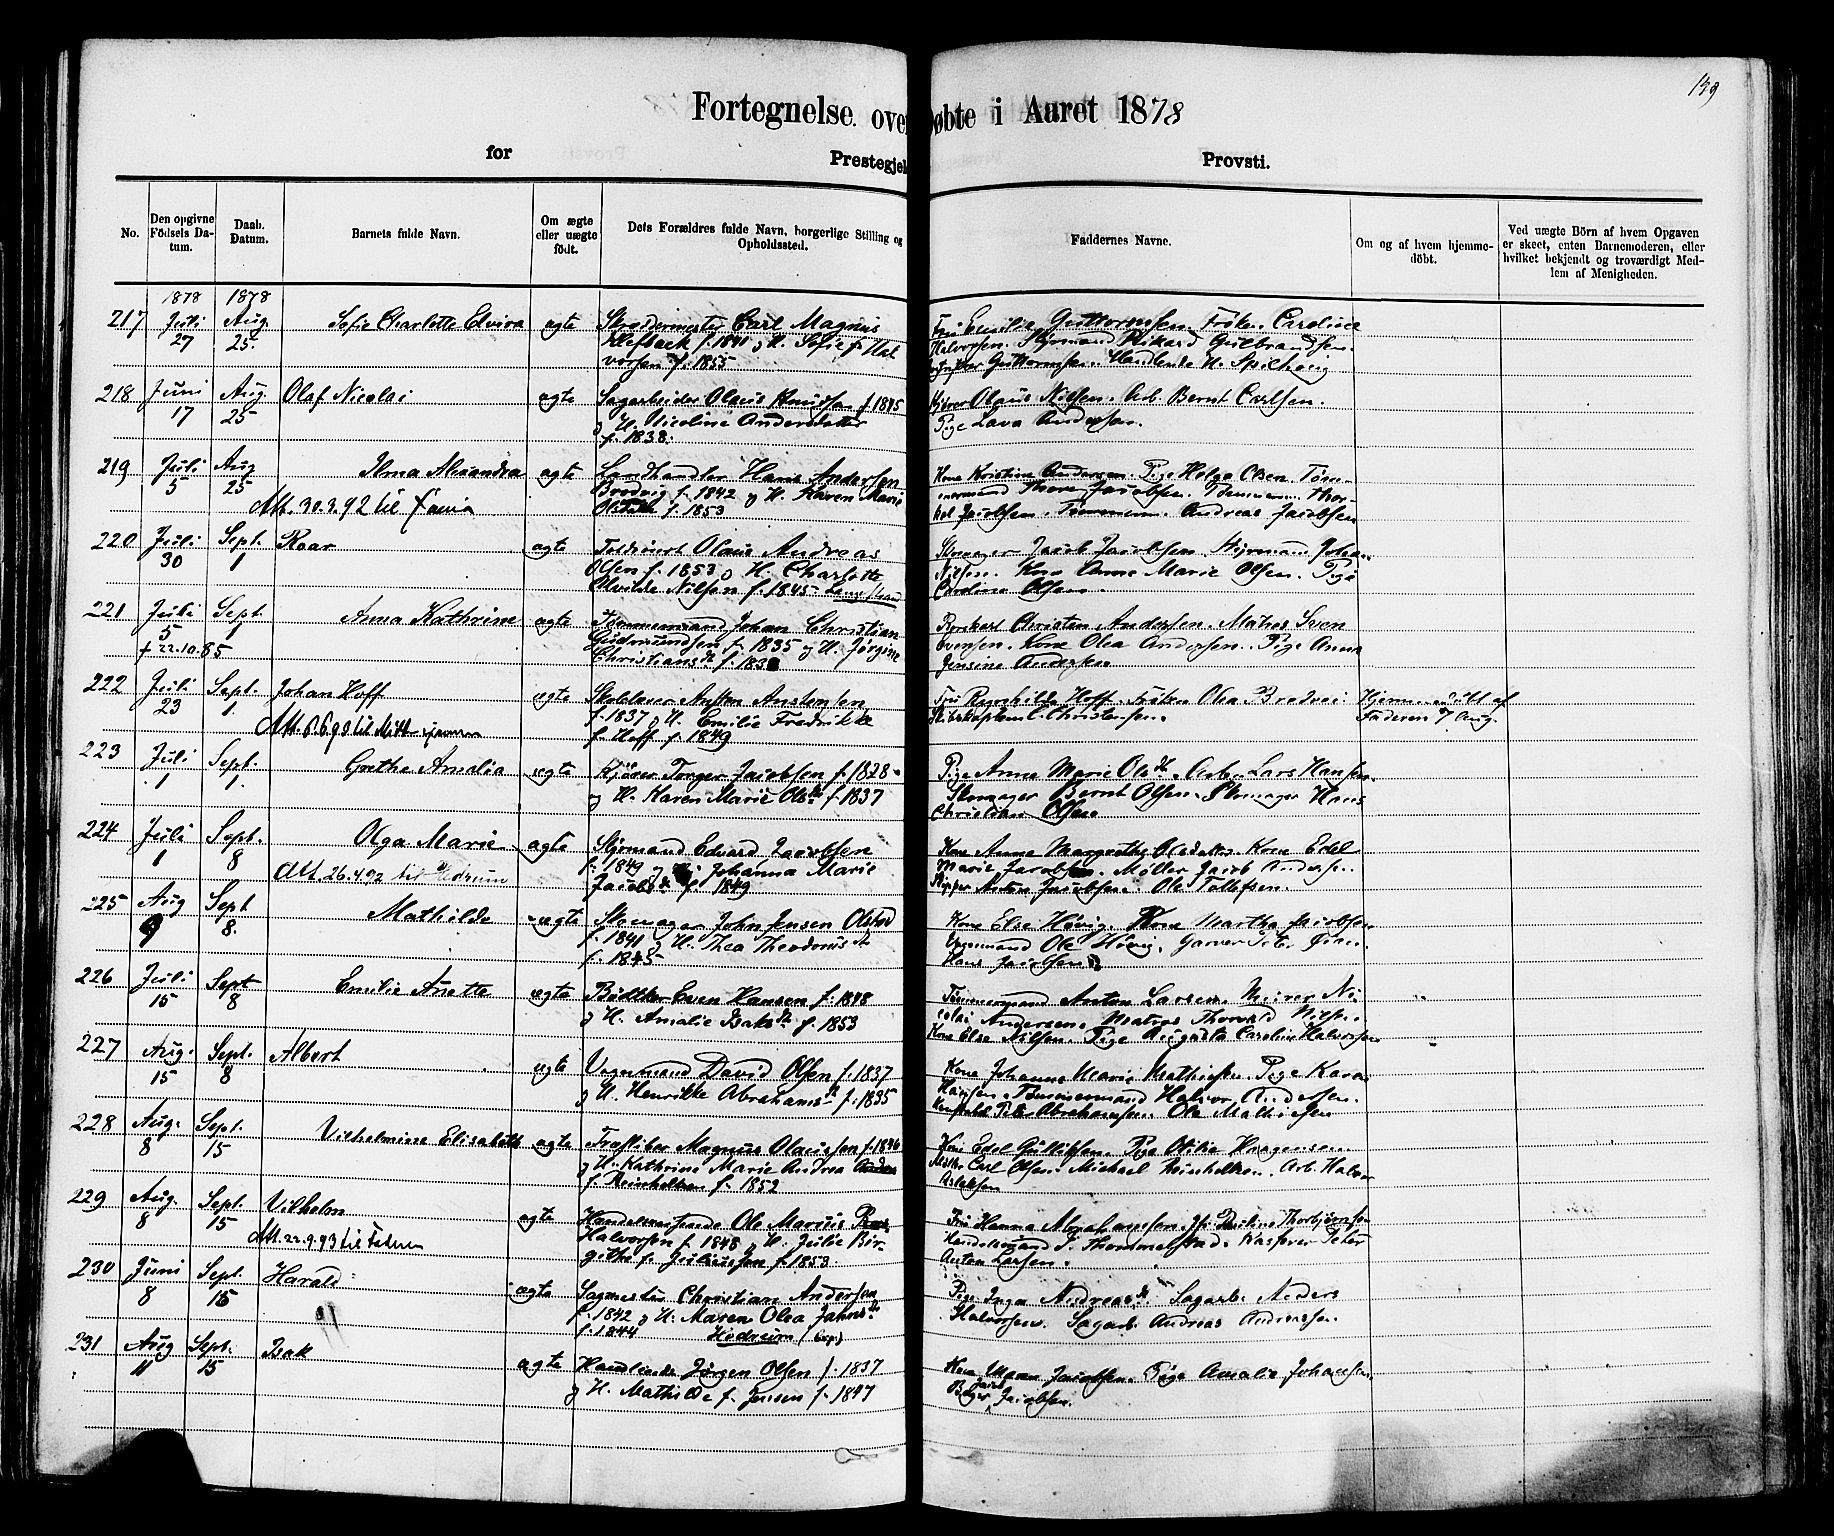 139
Fortegnelse over Døbte i Aaret 1878
for Prestegjeld Provsti.
No. Den opgivne Födsels Datum. Daab. Datum. Barnets fulde Navn. Om ægte eller uægte födt. Dets Forældres fulde Navn, borgerlige Stilling og Opholdssted. Faddernes Navne. Om og af hvem hjemmedöbt. Ved uægte Börn af hvem Opgaven er skeet, enten Barnemoderen, eller hvilket bekjendt og troværdigt Medlem af Menigheden.
1878 1878
217 Juli Aug. Sofie Charlotte Elvira ægte Skreddermester Carl Magnus Frü Emilie Guttormsen. Frøken Caroline
27 25. f. 1841 og H. Sofie f. Hal Halvorsen. Styrmand Rikard Gulbrandsen.
vorsen f. 1855 Guttormsen. Handlende H.
218 Juni Aug. Olaf Nicolai ægte Sagarbeider Olaus Knudsen f. 1845 Kjører Olaus Nilsen. Arb. Bernt Carlsen.
17 25 og H. Nicoline Andersdatter Pige Lava Andersen.
f. 1838.
219 Juli Aug Alma Alexandra ægte Landhandler Hans Andersen Kone Kristine Andersen. Pige Helga Olsen Tøm-
5 25 f. 1842 og H. Karen Marie mermand Thore Jacobsen. Tømmerm. Thor-
Att. 30.3.92 til f. 1853 kel Jacobsen. Tømmerm. Andreas Jacobsen
220 Juli Sept. Roar ægte Olaus Andreas Skomager Jacob Jacobsen. Styrmand Johan
30 1 Olsen f. 1853 og H. Charlotte Nilsen. Kone Anne Marie Olsen. Pige
Olvilde Nilsen f. 1845 Caroline Olsen.
221 Juli Sept Anna Kathrine ægte Tømmermand Johan Christian Christen Andersen. Matros Sven
5 1 Gudmundsen f. 1835 og H. Jørgine Evensen. Kone Olea Andersen. Pige Anna
† 22.10.85 Christiansdr f. Jensine Andersen
222 Juli Sept. Johan Hoff ægte Skolelærer Anstensen Frü Ragnhilde Hoff. Frøken Olea Hjemmedøbt af
23 1. f. 1837 og H. Emilie Fredrikke Skibskaptein C. Christensen. Faderen 7 Aug.
Att. 6.6.90 til f. Hoff f. 1849
223 Juli Sept. Grethe Amalia ægte Kjører Torger Jacobsen f. 1828 Pige Anne Marie Olsdr. Arb. Lars Hansen.
1 1. og H. Karen Marie Olsdr f. 1837 Skomager Bernt Olsen. Skomager Hans
Christian Olsen
224 Juli Sept. Olga Marie ægte Styrmand Edvard Jacobsen Kone Anne Margrethe Olsdatter. Kone Edel
1 8 f. 1849 og Johanna Marie Marie Jacobsen. Møller Jacob Andersen.
Att. 26.4.92 til Hedrum Jacobsdr f. 1849 Skipper Anton Jacobsen. Ole Tollefsen.
225 Aug Sept Mathilde ægte Skomager John Jensen Kone Else Høvig. Kone Martha Jacobsen
9 8. f. 1841 og H. Thea Vognmand Ole Høvig. Garver
f. 1845 Hans Jacobsen
226 Juli Sept Emilie Anette ægte Bødker Even Hansen f. 1848 Tømmermand Anton Larsen. Murer Ni
15 8 og H. Amalie Isaksdr f. 1853 colai Andersen. Matros Thorvald Nilsen.
Kone Else Nilsen. Pige Augusta Caroline Halvorsen
227 Aug. Sept. Albert ægte Vognmand David Olsen f. 1837 Kone Johanne Marie Mathisen. Pige Karen
15 8 og H. Henrikke Abrahamsdr f. 1835 Hansen. Tømmermand Halvor Andersen.
Peter Abrahamsen. Ole Mathisen
228 Aug. Sept. Vilhelmine Elisabeth ægte Magnus Olaussen f. 1846 Kone Edel Gulliksen. Pige Otilie Haagensen.
8 15 og H. Kathrine Marie Andrea Carl Olsen. Michael Reinholtsen. Arb. Halvor
f. Reinholtsen f. 1852 Aslaksen
229 Aug. Sept. Vilhelm ægte Handelsreisende Ole Marius Frü Hanna Abrahamsen.
8 15 Halvorsen f. 1848 og H. Julie Bir Handelsmand Kasserer Peter
Att. 22.9.93 til Faderen githe f. Juliussen f. 1853. Anton Larsen.
230 Juni Sept. Harald ægte Sagmester Christian Andersen Pige Inga Andreasdr Sagarb. Anders
8 15 f. 1842 og H. Maren Olea Jahnsdr Halvorsen. Sagarb. Andreas Andreassen.
f. 1844 Hedrum
231 Aug Sept. Isak ægte Handlende Jørgen Olsen f. 1837 Kone Maren Jacobsen. Pige Amalie Johansen.
11 15 og H. Mathilde f. Jensen f. 1847 Jacob Jacobsen.